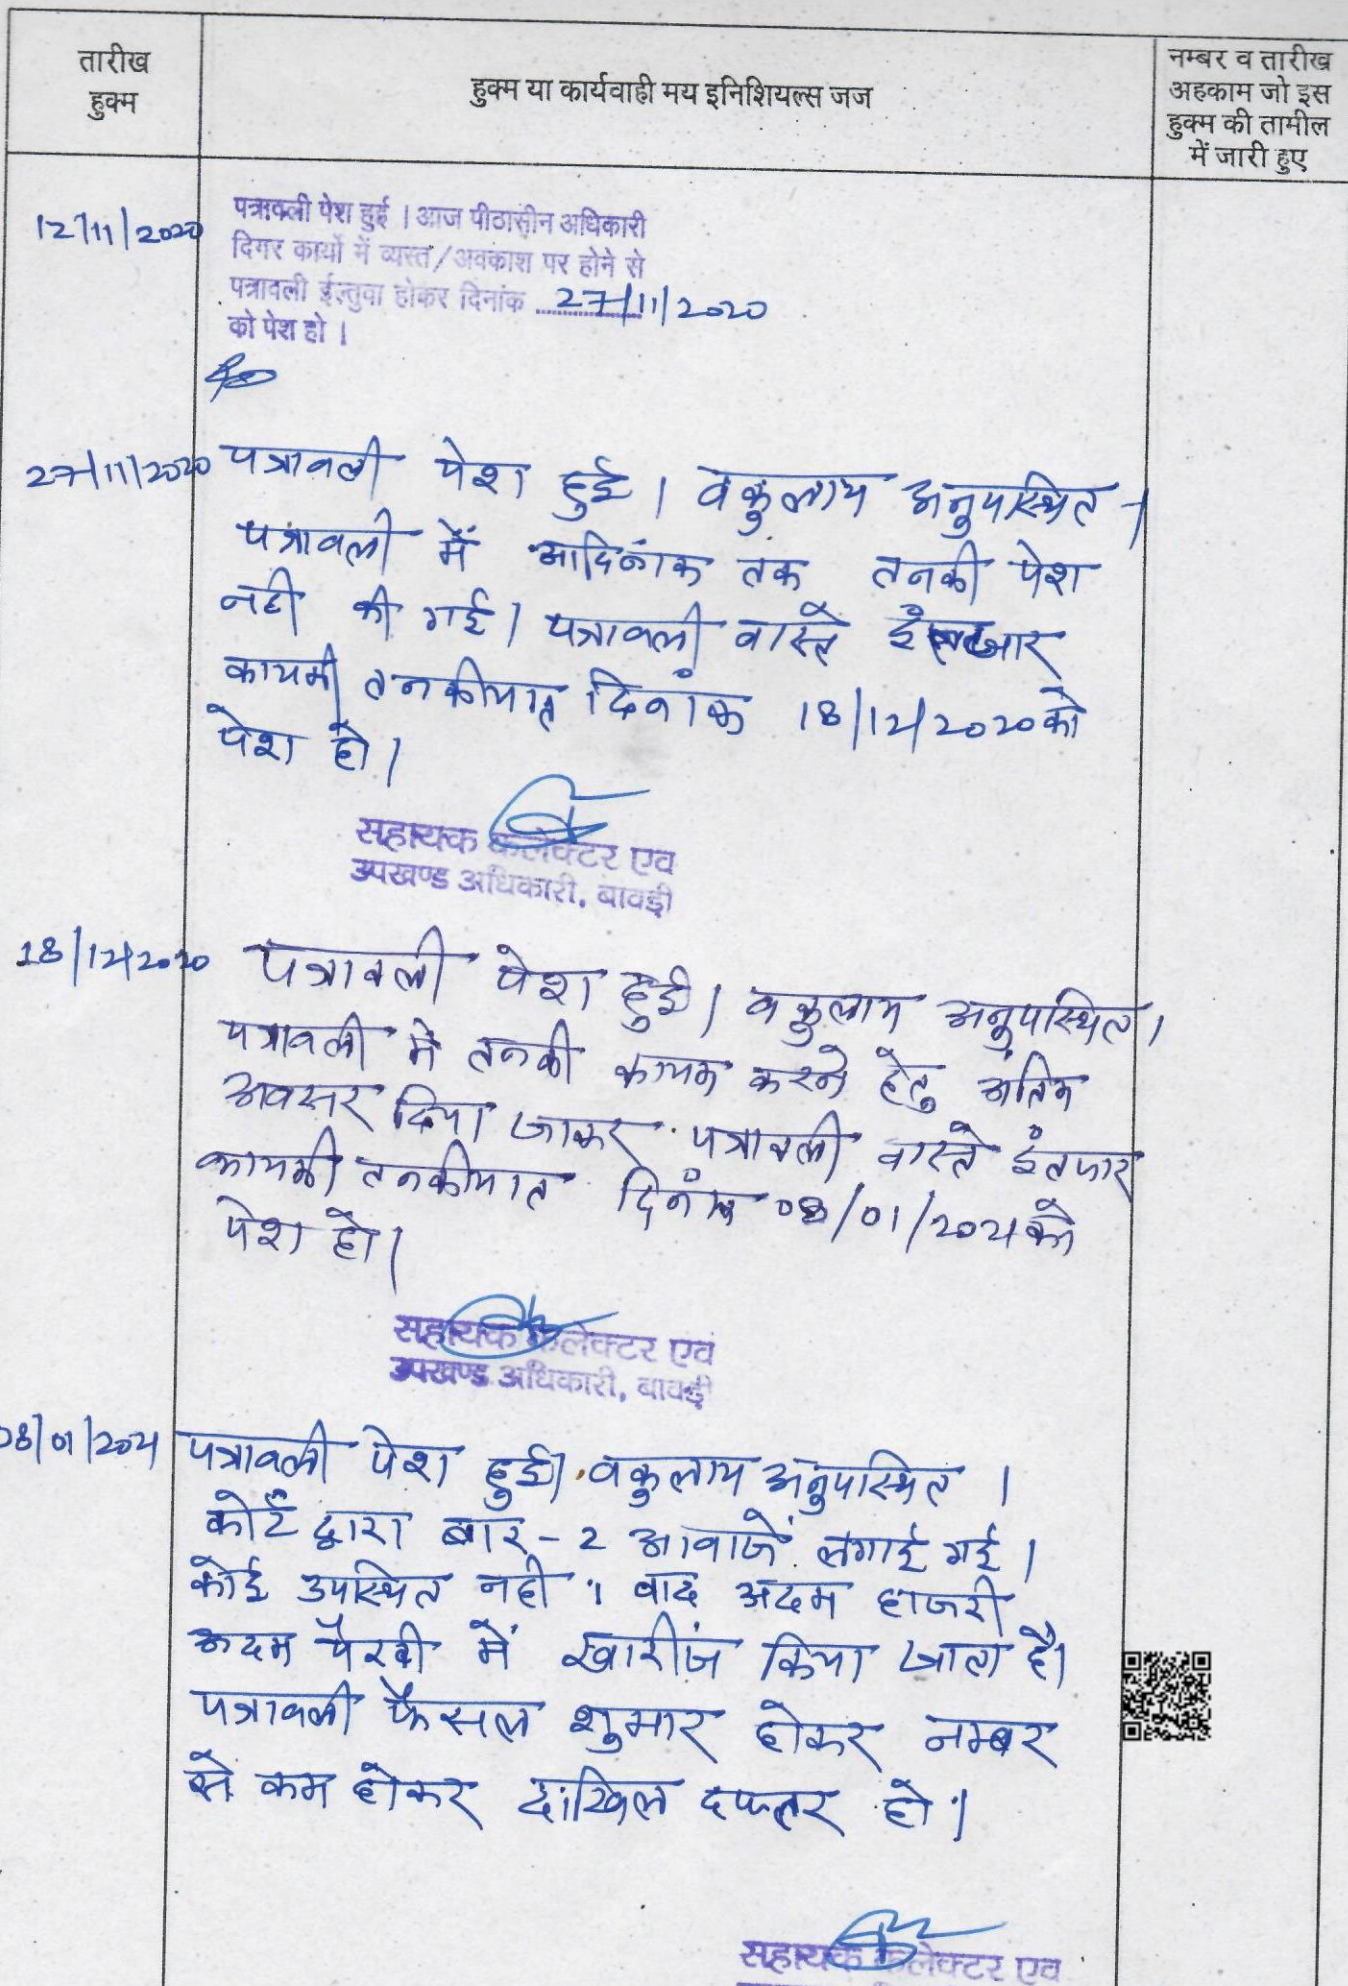 तारीख
हुक्म
हुक्म या कार्यवाही मय इनिशियल्स जज
नम्बर व तारीख
अहकाम जो इस
हुक्म की तामील
में जारी हुए
12/11/2020
पत्रावली पेश हुई । आज पीठासीन अधिकारी
दिगर कार्यो में व्यस्त/अवकाश पर होने से
पत्रावली ईल्तुवा होकर दिनांक 27/11/2020
को पेश हो ।
27/11/2020 पत्रावली पेश हुई। वकुलाय अनुपस्थित।
पत्रावली में आदिनांक तक तनकी पेश
नही की गई। पत्रावली वास्ते इंतजार
कायमी तनकीयात दिनांक 18/12/2020 को
पेश हो।
सहायक कलेक्टर एव
उपखण्ड अधिकारी, बावड़ी
18/12/2020 पत्रावली पेश हुई। वकुलाय अनुपस्थित।
पत्रावली मे तनकी कायम करने हेतु अंतिम
अवसर दिया जाकर पत्रावली वास्ते इंतजार
कायमी तनकीयात दिनांक 08/01/2021 को
पेश हो।
सहायक कलेक्टर एवं
उपखण्ड अधिकारी, बावड़ी
08/01/2021 पत्रावली पेश हुई। वकुलाय अनुपस्थित ।
कोर्ट द्वारा बार-2 आवाजें लगाई गई।
कोई उपस्थित नही । वाद अदम हाजरी
अदम पैरवी में खारीज किया जाता है।
पत्रावली फैसल शुमार होकर नम्बर
से कम होकर दाखिल दफ्तर हो।
सहायक कलेक्टर एव